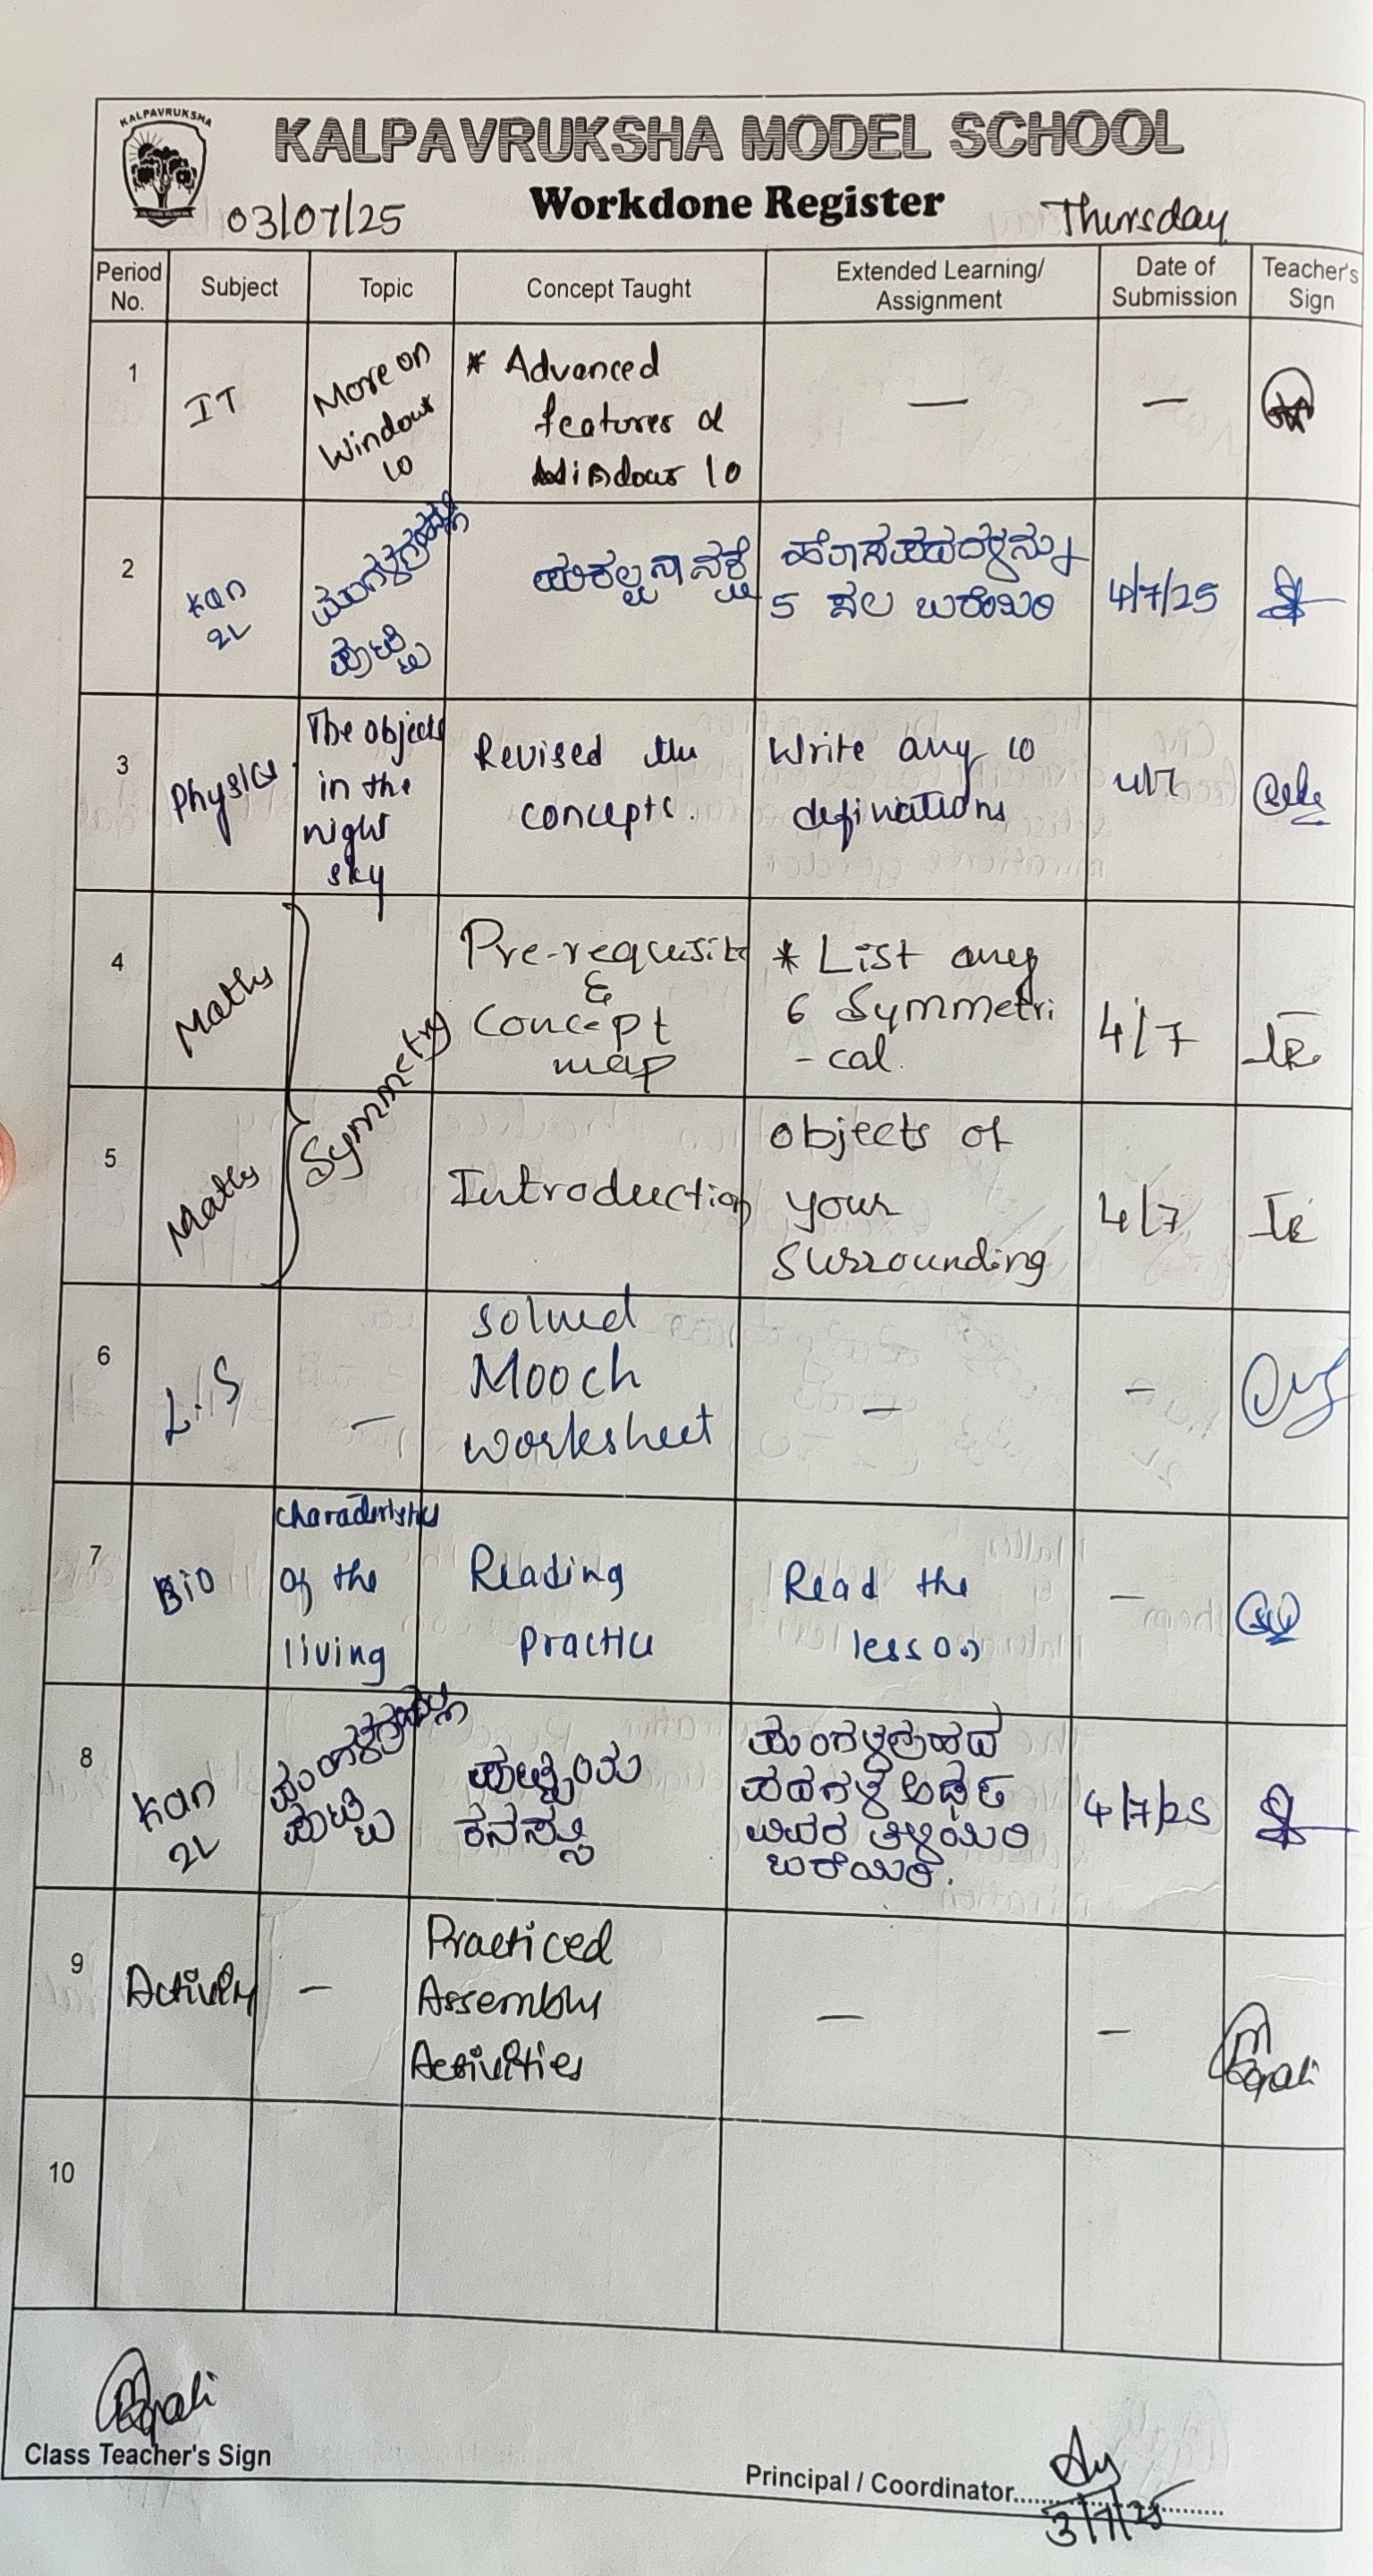 KALPAVRUKSHA
KALPAVRUKSHA MODEL SCHOOL
03/07/25 Workdone Register Thursday
Period No. Subject Topic Concept Taught Extended Learning/ Assignment Date of Submission Teacher's Sign
1 IT
More on
Windows
10
* Advanced
features of
Windows 10
— —
2 Kan
2L
ಮಂಗಳಗ್ರಹದಲ್ಲಿ
ಪುಟ್ಟಿ
ಪರಿಕಲ್ಪನಾ ನಕ್ಷೆ
ಹೊಸಪದಗಳನ್ನು
5 ಸಲ ಬರೆಯಿರಿ
4/7/25
3 Physics
The objects
in the
night
sky
Revised the
concepts.
Write any 10
definations
4/7
4 Maths
Symmetry
Pre-requisite
&
Concept
map
* List any
6 Symmetri
-cal.
4/7
5 Maths
Introduction
objects of
your
surrounding
4/7
6 L.S
—
solved
Mooch
worksheet
— -
7 Bio
characteristics
of the
living
Reading
practice
Read the
lesson
—
8 Kan
2L
ಮಂಗಳಗ್ರಹದಲ್ಲಿ
ಪುಟ್ಟಿ
ಪುಟ್ಟಿಯ
ಕನಸಲ್ಲಿ
ಮಂಗಳಗ್ರಹದ
ಪದಗಳ ಅರ್ಥ
ವಿವರ ತಿಳಿಯಿರಿ
ಬರೆಯಿರಿ.
4/7/25
9 Activity
-
Practiced
Assembly
Activities
— —
10
Class Teacher's Sign
Principal / Coordinator
3/7/25